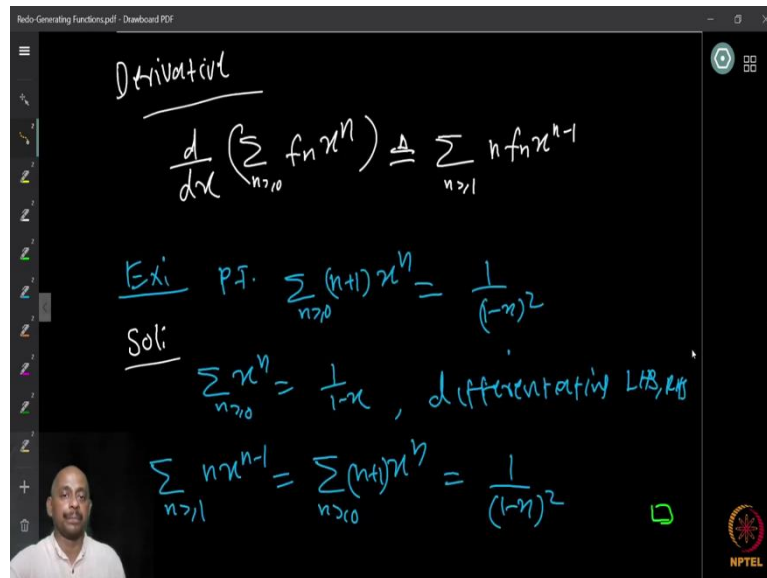 Redo-Generating Functions.pdf - Drawboard PDF
Derivative
d/dx (∑_{n≥0} fn x^n) ≜ ∑_{n≥1} n fn x^{n-1}
Ex: P.T. ∑_{n≥0} (n+1) x^n = 1/(1-x)^2
Sol:
∑_{n≥0} x^n = 1/(1-x) , differentiating LHS, RHS
∑_{n≥1} n x^{n-1} = ∑_{n≥0} (n+1) x^n = 1/(1-x)^2
NPTEL